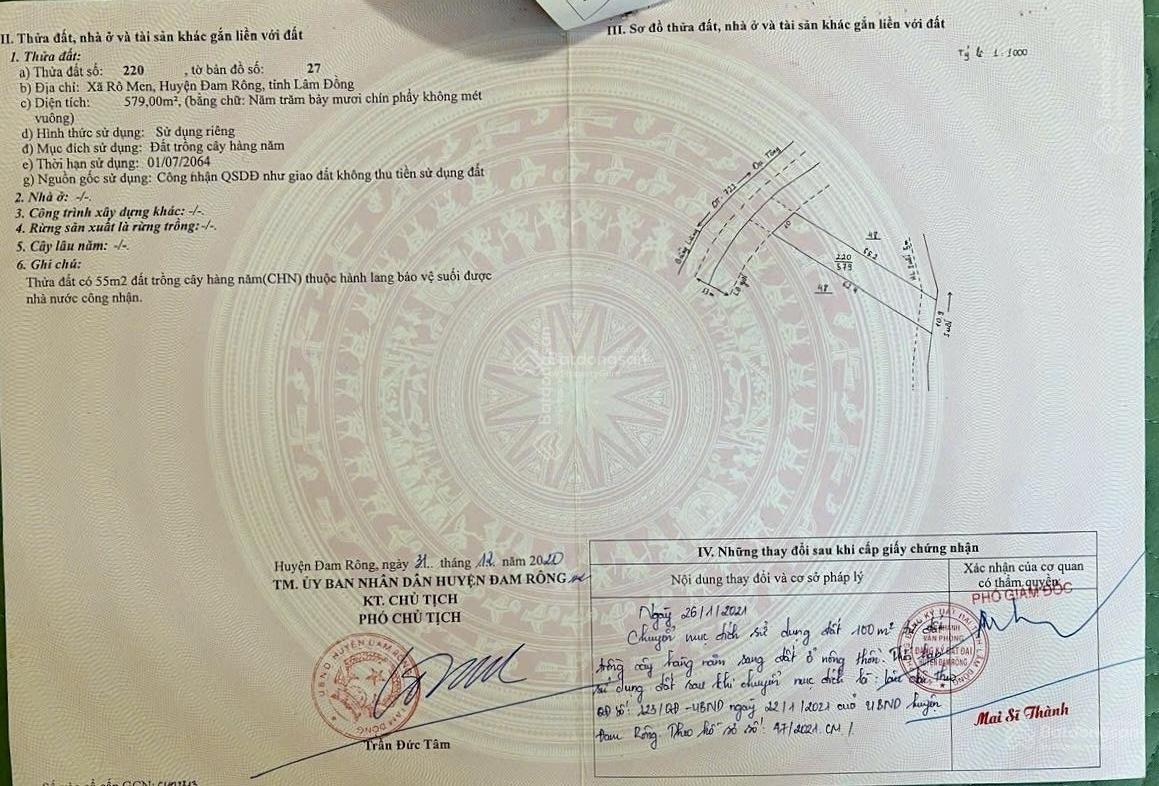 II. Thửa đất, nhà ở và tài sản khác gắn liền với đất
1. Thửa đất:
a) Thửa đất số: 220 , tờ bản đồ số: 27
b) Địa chỉ: Xã Rô Men, Huyện Đam Rông, tỉnh Lâm Đồng
c) Diện tích: 579,00m², (bằng chữ: Năm trăm bảy mươi chín phẩy không mét
vuông)
d) Hình thức sử dụng: Sử dụng riêng
đ) Mục đích sử dụng: Đất trồng cây hàng năm
e) Thời hạn sử dụng: 01/07/2064
g) Nguồn gốc sử dụng: Công nhận QSDĐ như giao đất không thu tiền sử dụng đất
2. Nhà ở: -/-.
3. Công trình xây dựng khác: -/-.
4. Rừng sản xuất là rừng trồng:-/-.
5. Cây lâu năm: -/-.
6. Ghi chú:
Thửa đất có 55m2 đất trồng cây hàng năm(CHN) thuộc hành lang bảo vệ suối được
nhà nước công nhận.
Huyện Đam Rông, ngày 31.. tháng 12. năm 2020
TM. ỦY BAN NHÂN DÂN HUYỆN ĐAM RÔNG
KT. CHỦ TỊCH
PHÓ CHỦ TỊCH
UBND HUYỆN ĐAM RÔNG
LÂM ĐỒNG
Trần Đức Tâm
III. Sơ đồ thửa đất, nhà ở và tài sản khác gắn liền với đất
Tỷ lệ 1:1000
ĐT. 722
Lộ giới
10
48
55.2
220
579
62.4
48
10.9
Suối
IV. Những thay đổi sau khi cấp giấy chứng nhận
Nội dung thay đổi và cơ sở pháp lý
Xác nhận của cơ quan
có thẩm quyền
PHÓ GIÁM ĐỐC
Ngày 26/1/2021
Chuyển mục đích sử dụng đất 100m² đất
trồng cây hàng năm sang đất ở nông thôn.
sử dụng đất sau khi chuyển mục đích là:
QĐ số: 123/QĐ-UBND ngày 22/1/2021 của UBND huyện
Đam Rông Theo hồ sơ số: 47/2021.CM./
CHI NHÁNH
VĂN PHÒNG
ĐĂNG KÝ ĐẤT ĐAI
HUYỆN ĐAM RÔNG
Mai Sĩ Thành
Batdongsan